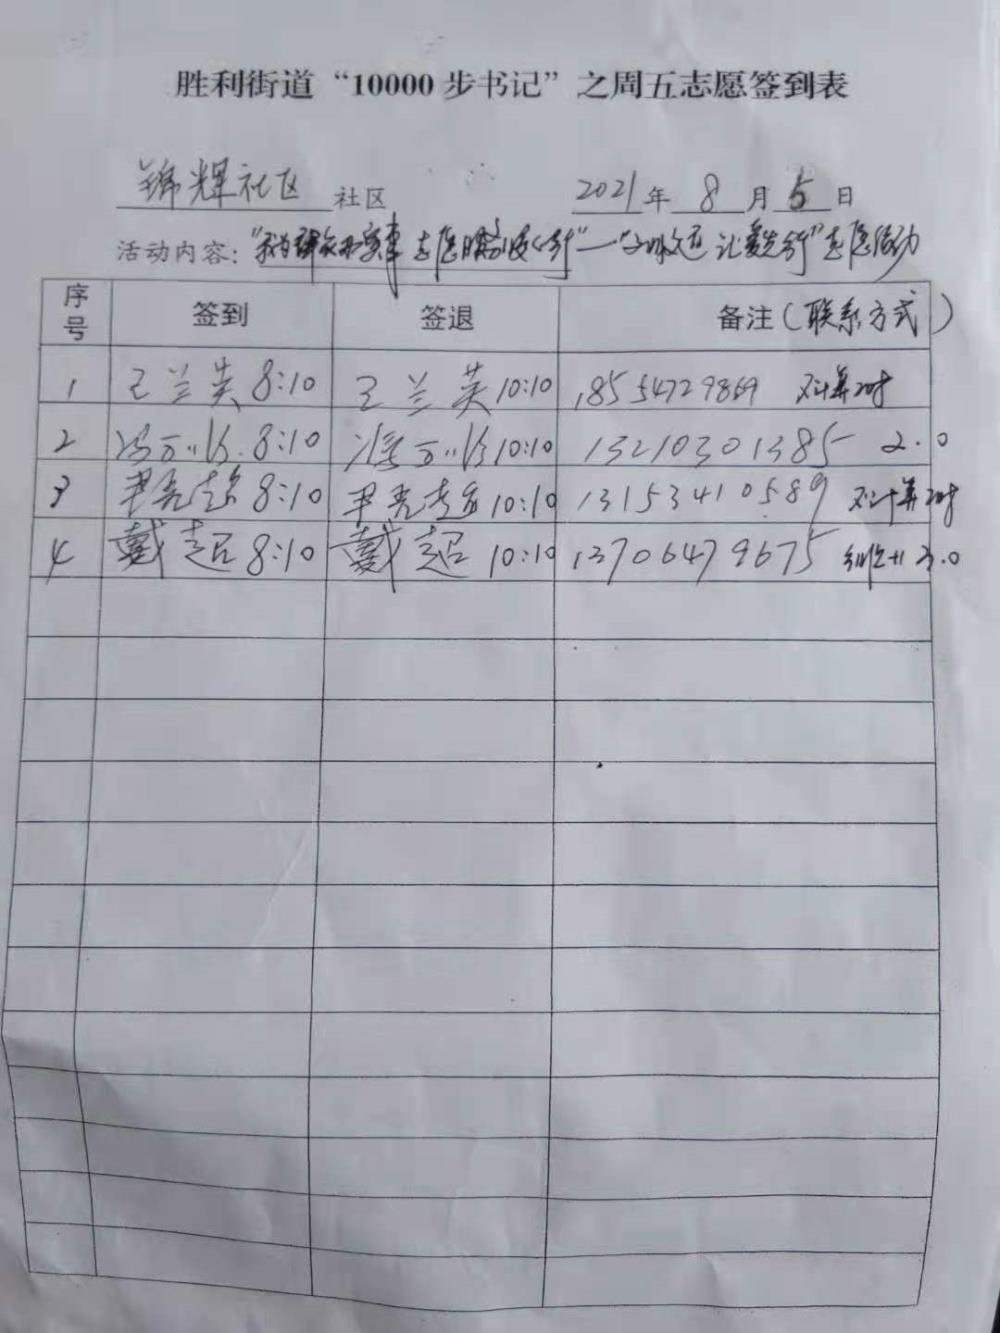 胜利街道“10000步书记”之周五志愿签到表
锦辉社区 社区 2021年 8 月 5 日
活动内容:“我为群众办实事 志愿服务我先行”—“文明交通 让爱先行”志愿活动
序号 签到 签退 备注(联系方式)
1 王兰英 8:10 王兰英 10:10 18554729869
2 8:10 10:10 13210301385 2.0
3 尹克 8:10 尹克 10:10 13153410589
4 戴超 8:10 戴超 10:10 13706479675 3.0